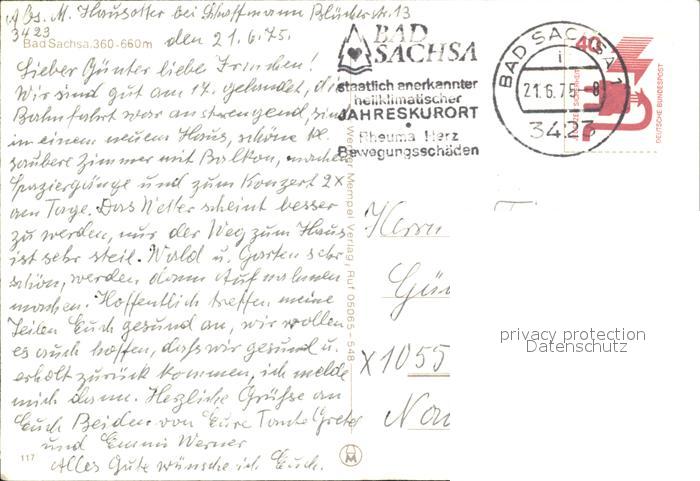 Abs. M. Hausotter bei Schaffmann Blücherstr. 13
3423
Bad Sachsa, 360-660m
den 21.6.75.
Lieber Günter liebe Frinchen!
Wir sind gut am 17. gelandet, die
Bahnfahrt war anstrengend, sind
in einem neuem Haus, schöne kl.
saubere Zimmer mit Balkon, machen
Spaziergänge und zum Konzert 2x
am Tage. Das Wetter scheint besser
zu werden, nur der Weg zum Haus
ist sehr steil. Wald u. Garten sehr
schön, werden dann Aufnahmen
machen. Hoffentlich treffen meine
Zeilen Euch gesund an, wir wollen
es auch hoffen, dahs wir gesund u.
erholt zurück kommen, ich melde
mich dann. Herzliche Grühse an
Euch Beiden von Eure Tante Grete
und Emmi Werner
Alles Gute wünsche ich Euch.
117
BAD
SACHSA
staatlich anerkannter
heilklimatischer
JAHRESKURORT
Rheuma Herz
Bewegungsschäden
BAD SACHSA 1
i
21.6.75-8
3423
40
DEUTSCHE BUNDESPOST
Mempel Verlag, Ruf 05065-548
Herrn
Gün
X1055
privacy protection
Datenschutz